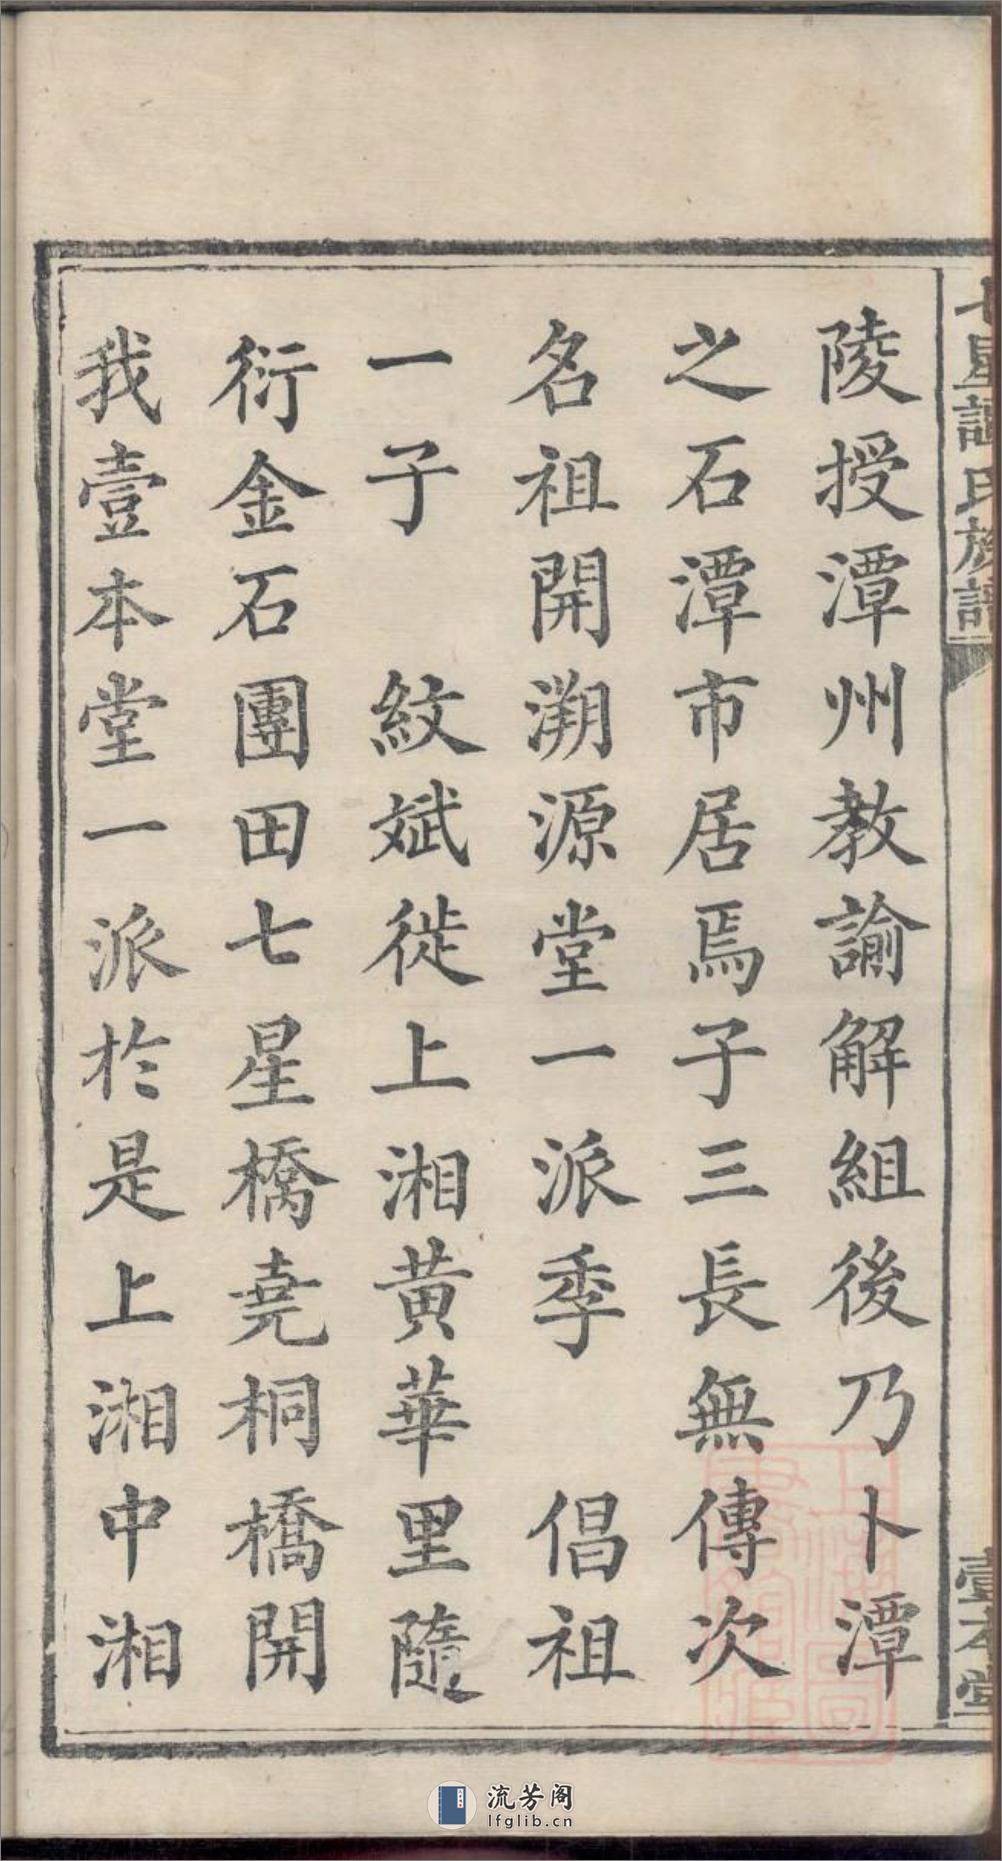 七星譚氏族譜
壹本堂
陵授潭州教諭解組後乃卜潭
之石潭市居焉子三長無傳次
名祖開溯源堂一派季　倡祖
一子　紋斌徙上湘黃華里隨
衍金石團田七星橋堯桐橋開
我壹本堂一派於是上湘中湘
流芳阁
lfglib.cn